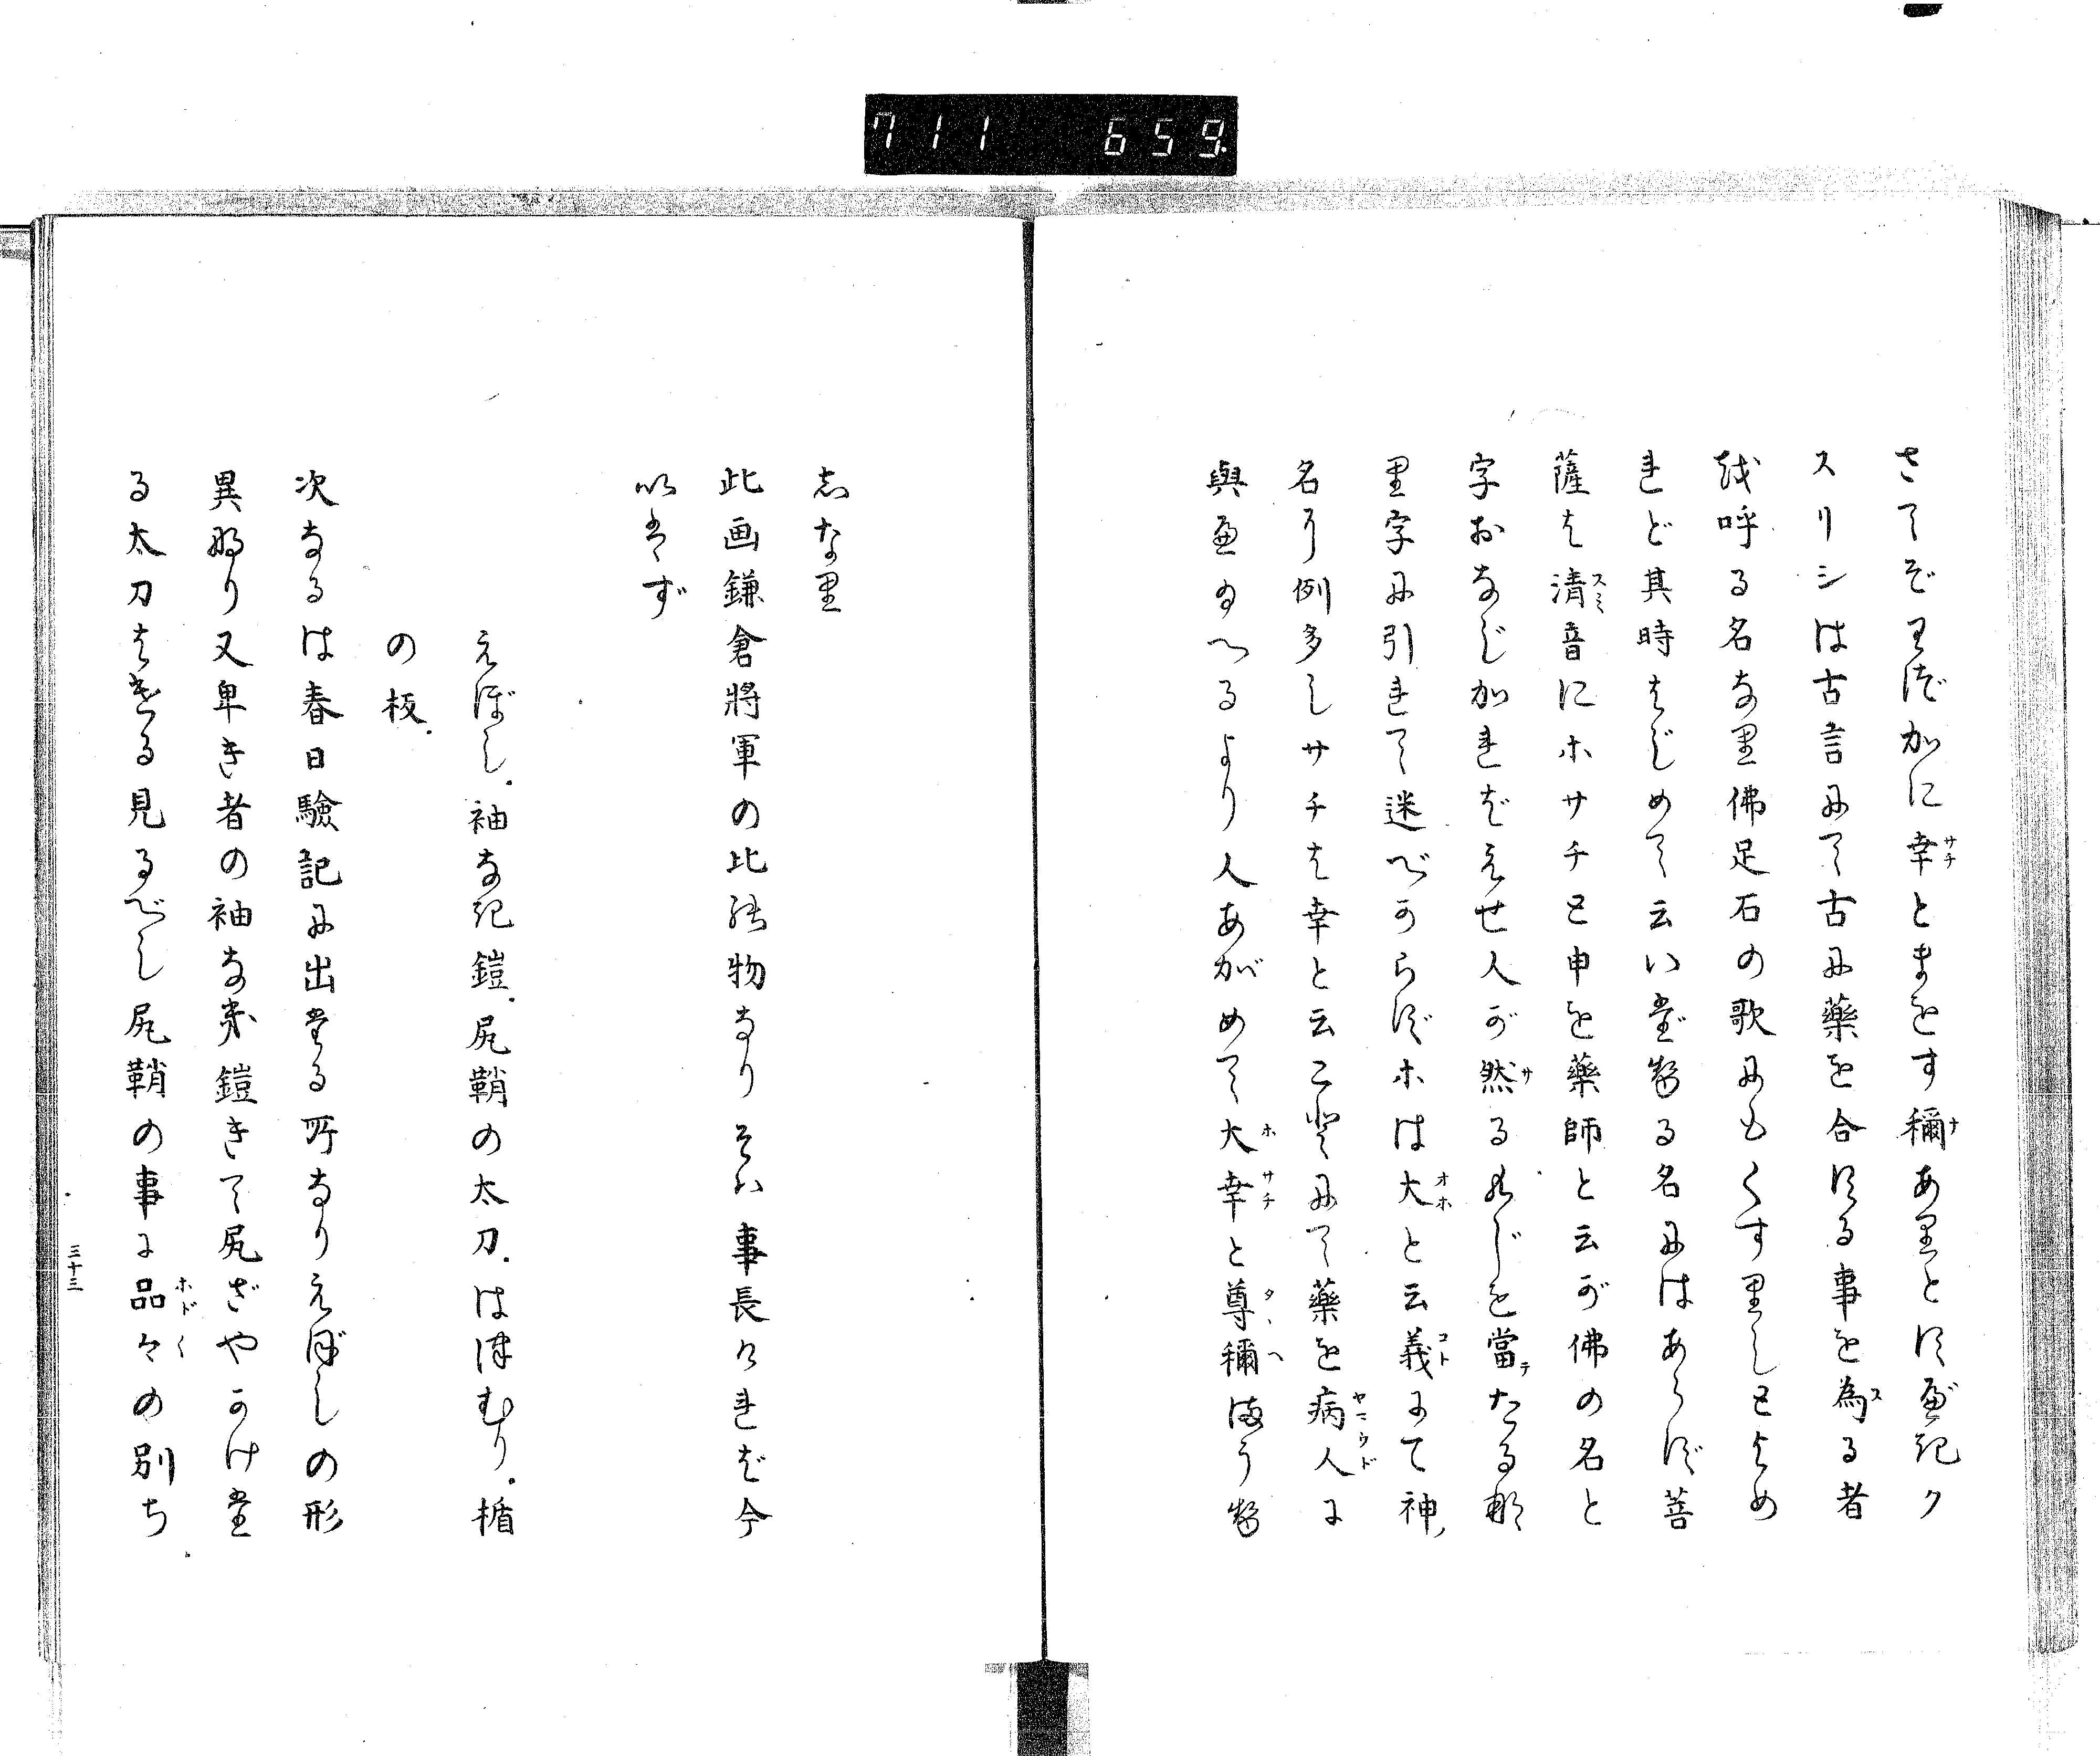 711 659
さてぞわづかに幸とまをす稱ありとすべきク
スリシは古言にて古に藥を合する事を為る者
を呼る名なり佛足石の歌にもくすりしとよめ
れど其時はじめて云いだせる名にはあらず菩
薩は清音にホサチと申を藥師と云が佛の名と
字おなじかればえせ人が然るもじを當たる那
り字に引れて迷べからずホは大と云義にて神ノ
名に例多しサチは幸と云ことにて藥を病人に
與ふるより人あがめて大幸と尊稱ま う せ
サチ
ナ
ス
スミ
サ
テ
オホ
コト
ヤマウド
ホサチ
タヽヘ
志なり
此画鎌倉將軍の比の物なりそは事長ければ今
いはず
えぼし.袖なき鎧.尻鞘の太刀.はばむり.楯
の板.
次なるは春日驗記に出たる所なりえぼしの形
異なり又卑き者の袖なき鎧きて尻ざやかけた
る太刀はける見るべし尻鞘の事に品々の別ち
ホド〱
三十三